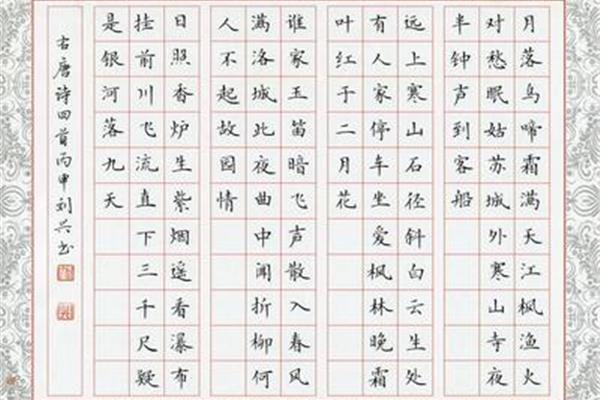 月落乌啼霜满天江枫渔火
对愁眠姑苏城外寒山寺夜
半钟声到客船
远上寒山石径斜白云生处
有人家停车坐爱枫林晚霜
叶红于二月花
谁家玉笛暗飞声散入春风
满洛城此夜曲中闻折柳何
人不起故园情
日照香炉生紫烟遥看瀑布
挂前川飞流直下三千尺疑
是银河落九天
右唐诗四首丙申刘兴书